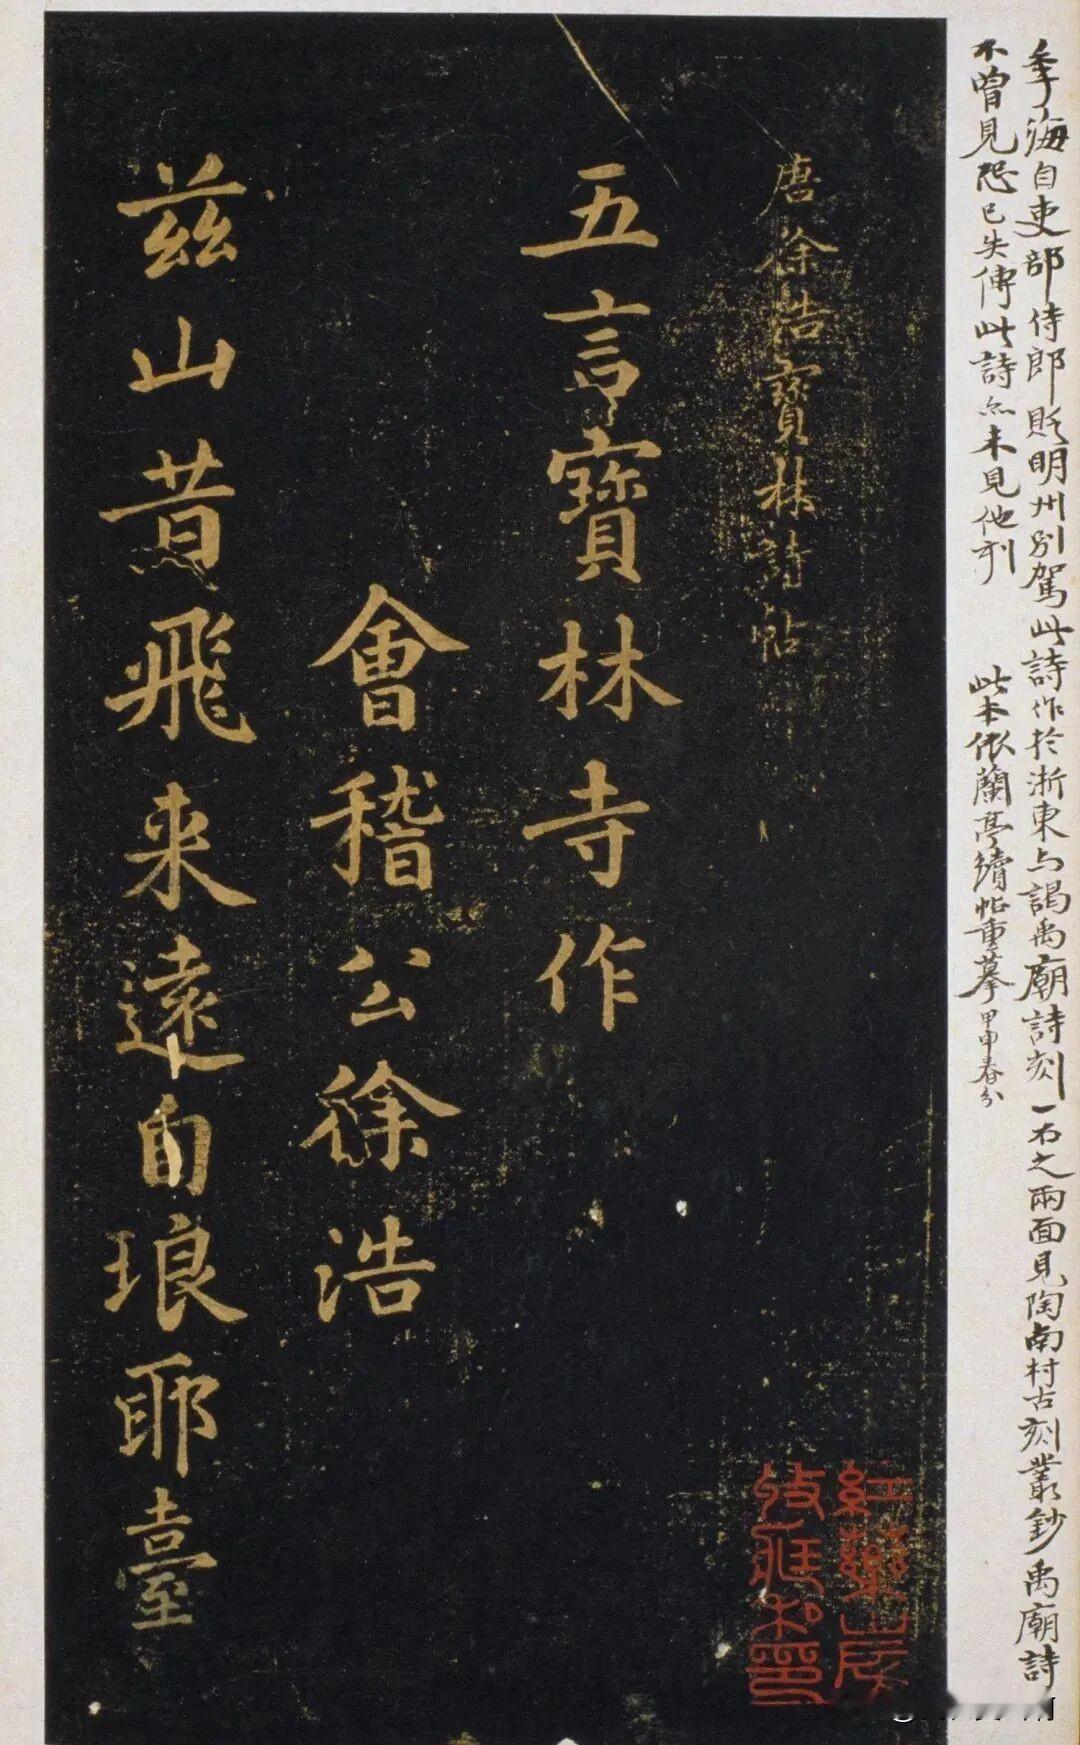 季海自吏部侍郎貶明州別駕此詩作於浙東与謁禹廟詩刻一石之兩面見陶南村古刻叢鈔禹廟詩
不曾見恐已失傳此詩亦未見他刻
此本依蘭亭續帖重摹甲申春分
唐徐浩寶林詩帖
五言寶林寺作
會稽公徐浩
茲山昔飛来遠自琅耶臺
紅藥山房
收藏私印